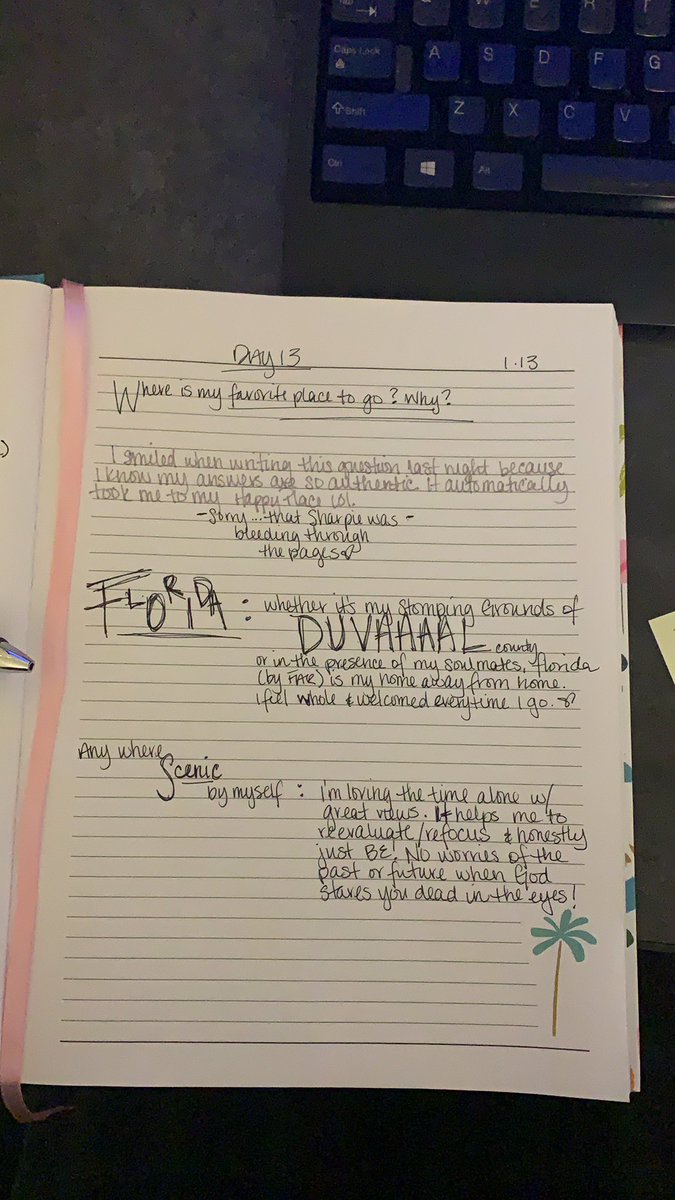 Tab
Q
W
E
R
Caps Lock
A
S
D
F
G
Shift
Z
X
C
V
Ctrl
Alt
DAY 13
1.13
Where is my favorite place to go? Why?
I smiled when writing this question last night because
I know my answers are so authentic. It automatically
took me to my Happy Place lol.
- Sorry... that Sharpie was -
bleeding through
the pages
FLORIDA : whether it's my Stomping Grounds of
DUVAAAAL county
or in the presence of my soulmates, Florida
(by FAR) is my home away from home.
I feel whole & welcomed everytime I go.
Any where
Scenic
by myself : I'm loving the time alone w/
great views. It helps me to
reevaluate/refocus & honestly
just BE! No worries of the
past or future when God
stares you dead in the eyes!